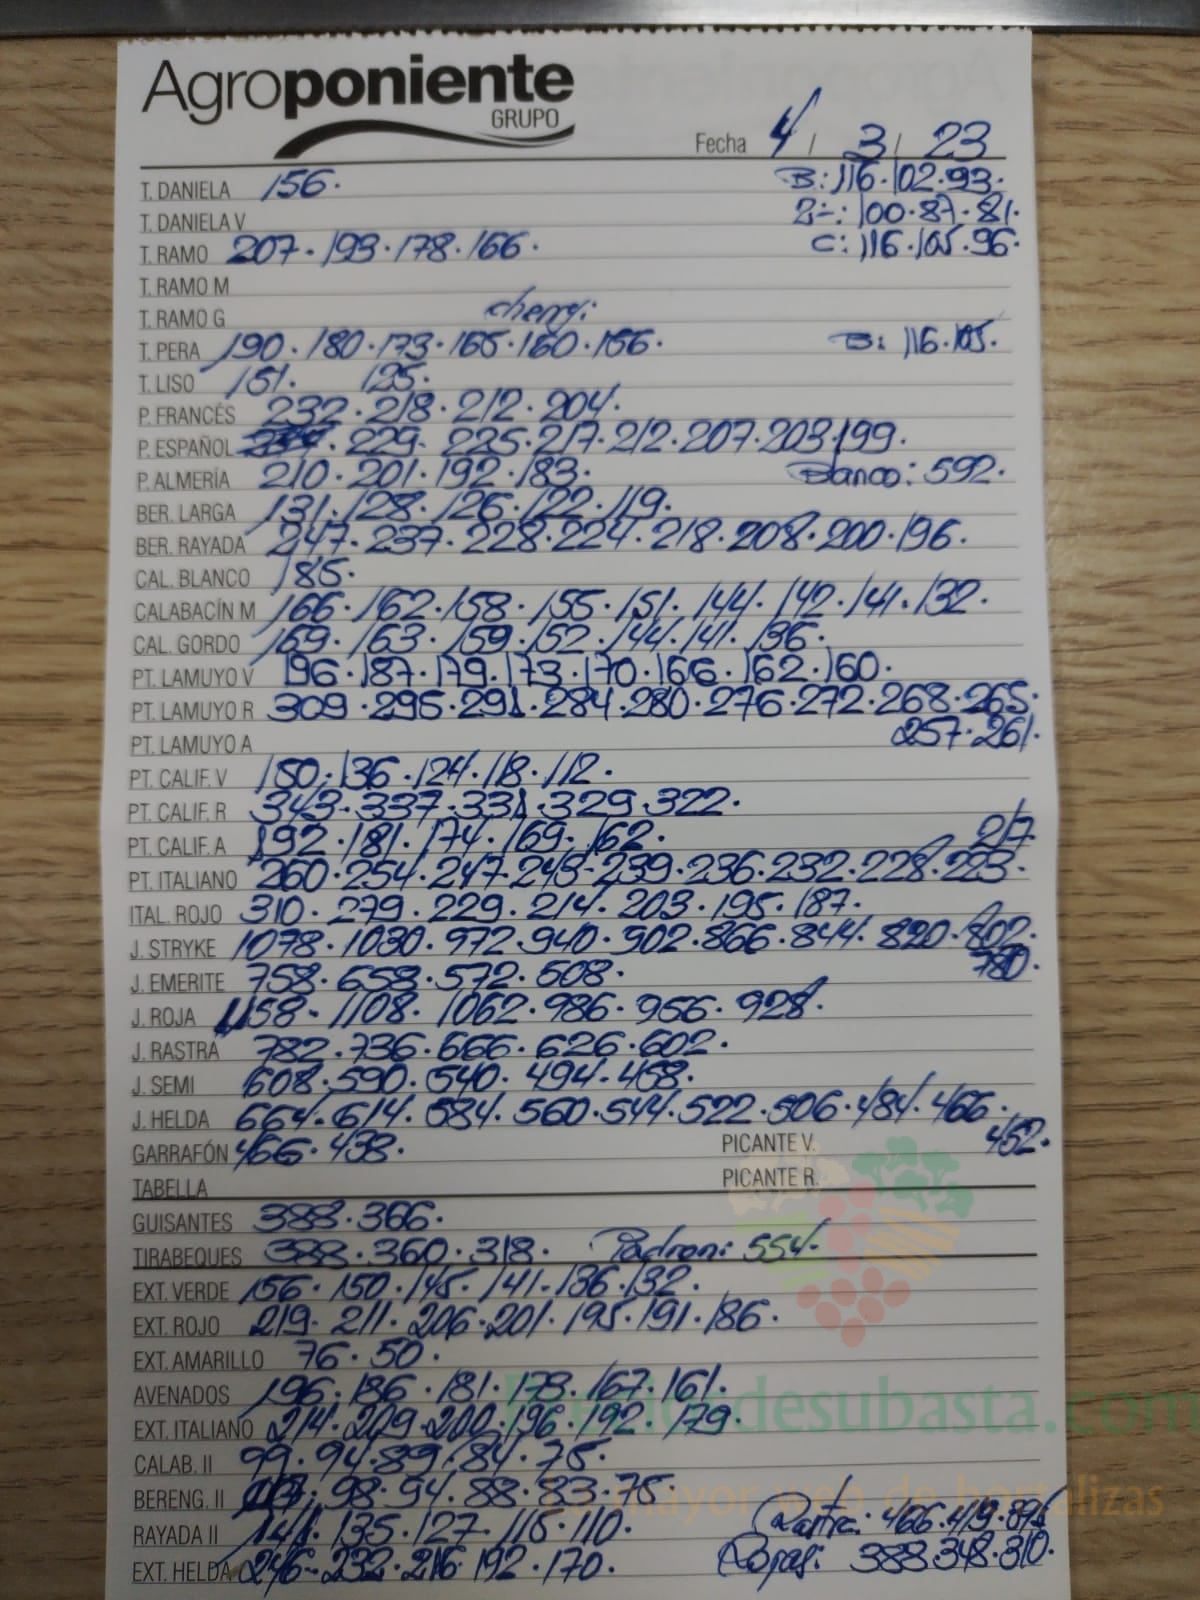 Agroponiente
GRUPO
Fecha 4 / 3 / 23
T. DANIELA 156. B.: 116.102.93.
T. DANIELA V 2-: 100.87.81.
T. RAMO 207.193.178.166. C: 116.105.96.
T. RAMO M
T. RAMO G cherry:
T. PERA 190.180.173.165.160.156. B: 116.105.
T. LISO 151. 125.
P. FRANCÉS 232.218.212.204.
P. ESPAÑOL 229.225.217.212.207.203.199.
P. ALMERÍA 210.201.192.183. Blanco: 592.
BER. LARGA 131.128.126.122.119.
BER. RAYADA 247.237.228.224.218.208.200.196.
CAL. BLANCO 185.
CALABACÍN M 166.162.158.155.151.144.142.141.132.
CAL. GORDO 169.163.159.152.144.141.136.
PT. LAMUYO V 196.187.179.173.170.166.162.160.
PT. LAMUYO R 309.295.291.284.280.276.272.268.265.
PT. LAMUYO A 257.261.
PT. CALIF. V 150.136.124.118.112.
PT. CALIF. R 343.337.331.329.322.
PT. CALIF. A 192.181.174.169.162. 217
PT. ITALIANO 260.254.247.243.239.236.232.228.223.
ITAL. ROJO 310.279.229.214.203.195.187.
J. STRYKE 1078.1030.972.940.902.866.844.820.802.
J. EMERITE 758.658.572.508. 780.
J. ROJA 1158.1108.1062.986.956.928.
J. RASTRA 782.736.666.626.602.
J. SEMI 608.590.540.494.458.
J. HELDA 664.614.584.560.544.522.506.484.466.
GARRAFÓN 466.438. PICANTE V. 452.
TABELLA PICANTE R.
GUISANTES 388.366.
TIRABEQUES 388.360.318. Padron: 554.
EXT. VERDE 156.150.145.141.136.132.
EXT. ROJO 219.211.206.201.195.191.186.
EXT. AMARILLO 76.50.
AVENADOS 196.186.181.173.167.161.
EXT. ITALIANO 214.209.200.196.192.179.
desubasta.com
CALAB. II 99.94.89.84.75.
BERENG. II 98.94.88.83.75
mayor web de hortalizas
RAYADA II 141.135.127.115.110. Rastra: 466.419.
EXT. HELDA 246.232.216.192.170. 388.348.310.